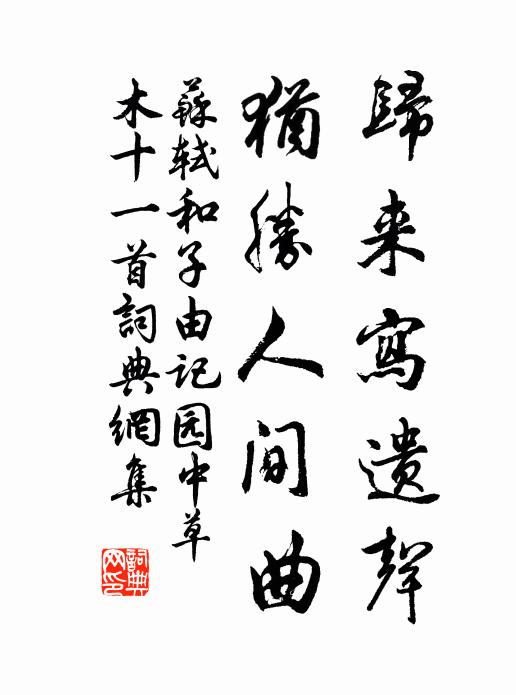 歸来寫遺聲
猶勝人间曲
蘇軾和子由记园中草
木十一首詞典網集
詞典
网印